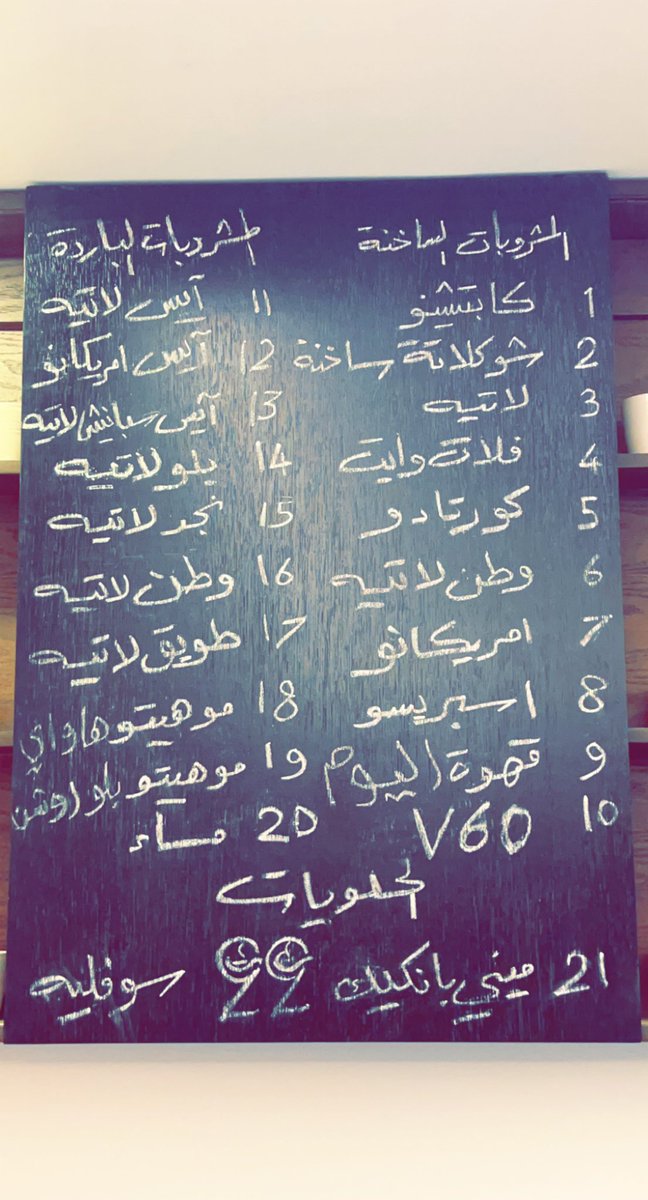 المشروبات الساخنة
1 كابتشينو
2 شوكلاتة ساخنة
3 لاتيه
4 فلات وايت
5 كورتادو
6 وطن لاتيه
7 امريكانو
8 اسبريسو
9 قهوة اليوم
10 V60
المشروبات الباردة
11 آيس لاتيه
12 آيس امريكانو
13 آيس سبانش لاتيه
14 بلو لاتيه
15 نجد لاتيه
16 وطن لاتيه
17 طويق لاتيه
18 موهيتو هاواي
19 موهيتو بلو اوشن
20 مساء
الحلويات
21 ميني بانكيك
22 سوفليه